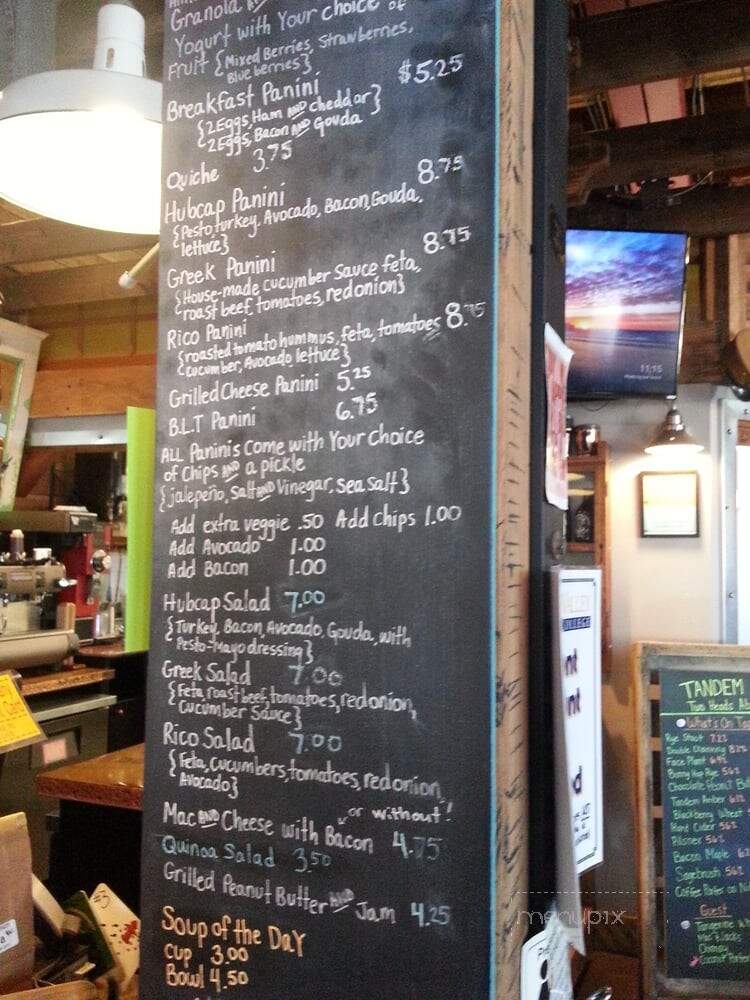 Granola
Yogurt with Your choice of
Fruit {Mixed Berries, Strawberries,
Blueberries}
Breakfast Panini $5.25
{2 Eggs, Ham AND cheddar}
{2 Eggs, Bacon AND Gouda
Quiche 3.75
Hubcap Panini 8.75
{Pesto, turkey, Avocado, Bacon, Gouda,
lettuce}
Greek Panini 8.75
{House-made cucumber Sauce feta,
roast beef, tomatoes, red onion}
Rico Panini 8.75
{roasted tomato hummus, feta, tomatoes
cucumber, Avocado lettuce}
Grilled Cheese Panini 5.25
B.L.T Panini 6.75
ALL Paninis Come with Your Choice
of Chips AND a pickle
{jalepeño, Salt AND Vinegar, Sea Salt}
Add extra veggie .50 Add Chips 1.00
Add Avocado 1.00
Add Bacon 1.00
Hubcap Salad 7.00
{Turkey, Bacon, Avocado, Gouda, with
Pesto-Mayo dressing}
Greek Salad 7.00
{Feta, roast beef, tomatoes, red onion,
Cucumber Sauce}
Rico Salad 7.00
{Feta, Cucumbers, tomatoes, red onion,
Avocado}
or without!
Mac AND Cheese with Bacon 4.75
Quinoa Salad 3.50
Grilled Peanut Butter AND Jam 4.25
Soup of the DAY
Cup 3.00
Bowl 4.50
11:15
#3
TANDEM
Two Heads
What's On Tap
Rye Stout 7.2%
Face Plant
Bunny Hop Rye 5%
Chocolate
Tandem Amber
Blackberry Wheat
Hard Cider 5%
Pilsner 5%
Bacon Maple
Sagebrush 5%
Coffee Porter on
Guest
Tangerine
Mac & Jacks
Coconut Porter
menupix